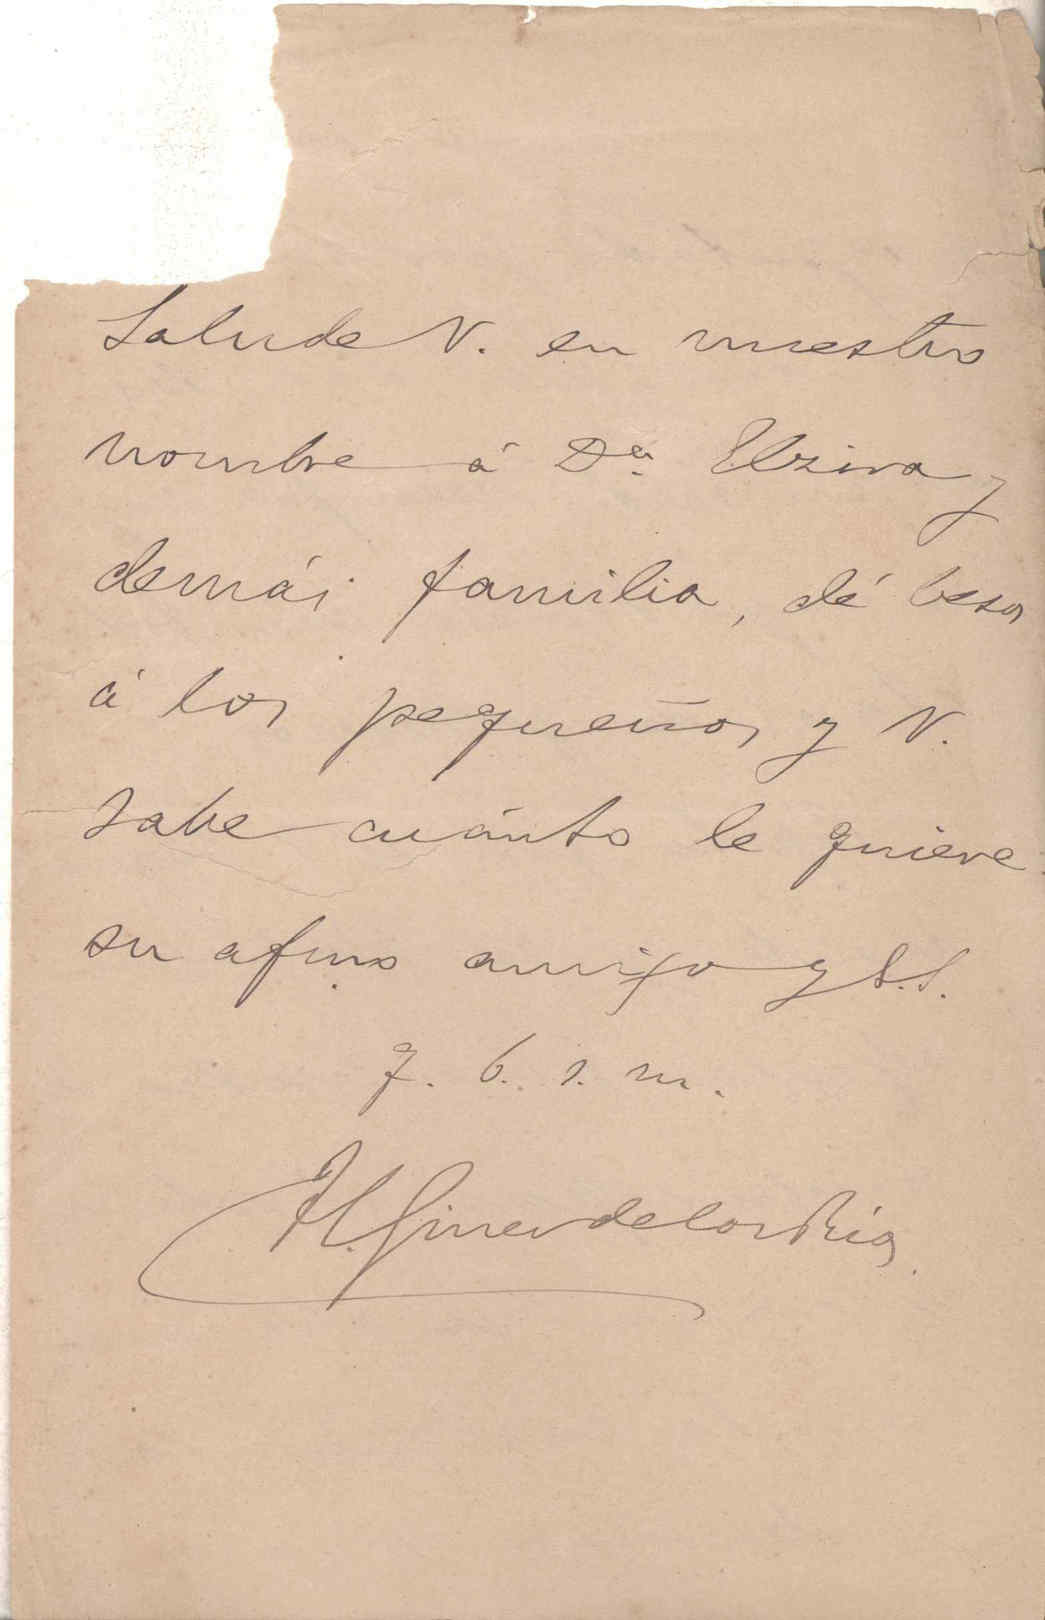 Salude V. en nuestro
nombre á Dª. Elzira y
demás familia, dé besos
á los pequeños y V.
sabe cuánto le quiere
su afmo amigo y S.S.
q. b. s. m.
H. Giner de los Ríos